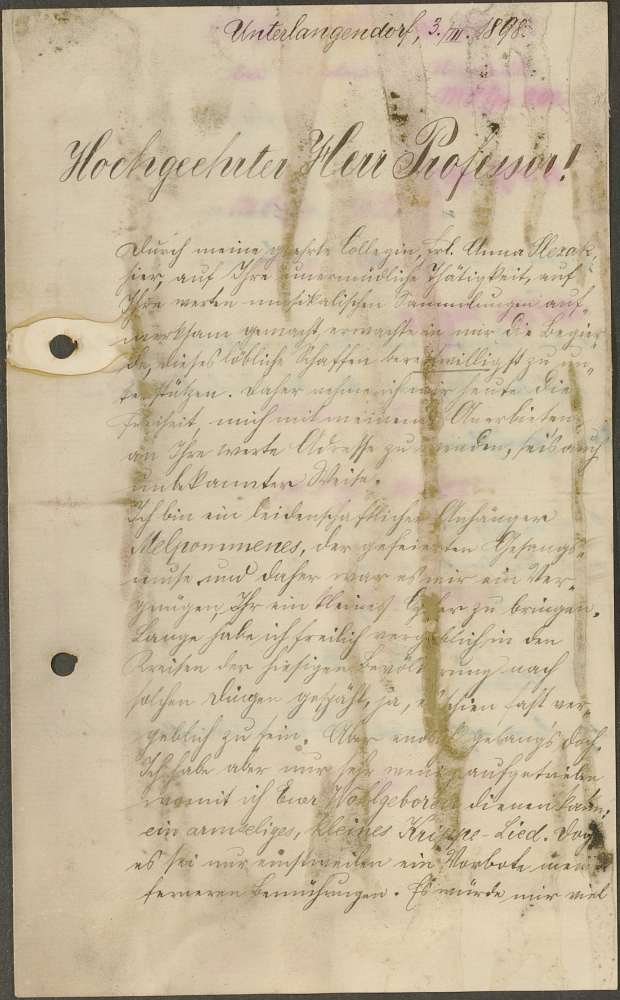 Unterlangendorf, 3./III. 1898.
Hochgeehrter Herr Professor!
Durch meine geehrte Collegin, Frl. Anna Slezak,
hier, auf Ihre unermüdliche Thätigkeit, auf
Ihre werten musikalischen Sammlungen auf-
merksam gemacht, erwachte in mir die Begier-
de, dieses löbliche Schaffen bereitwilligst zu un-
terstützen. Daher nehme ich mir heute die
Freiheit, mich mit meinem Anerbieten
an Ihre werte Adresse zu wenden, sei's auch
unbekannter Weise.
Ich bin ein leidenschaftlicher Anhänger
Melpommenes, der gefeierten Gesangs-
muse und daher war es mir ein Ver-
gnügen, Ihr ein kleines Opfer zu bringen.
Lange habe ich freilich vergeblich in den
Kreisen der hiesigen Bevölkerung nach
solchen Dingen gespäht, ja, es schien fast ver-
geblich zu sein. Aber endlich gelang's doch.
Ich habe aber nur sehr wenig aufgetrieben
womit ich Euer Wohlgeboren dienen kann:
ein armseliges, kleines Krippe-Lied. Doch
es sei nur einstweilen ein Vorbote meiner
ferneren Bemühungen. Es würde mir viel